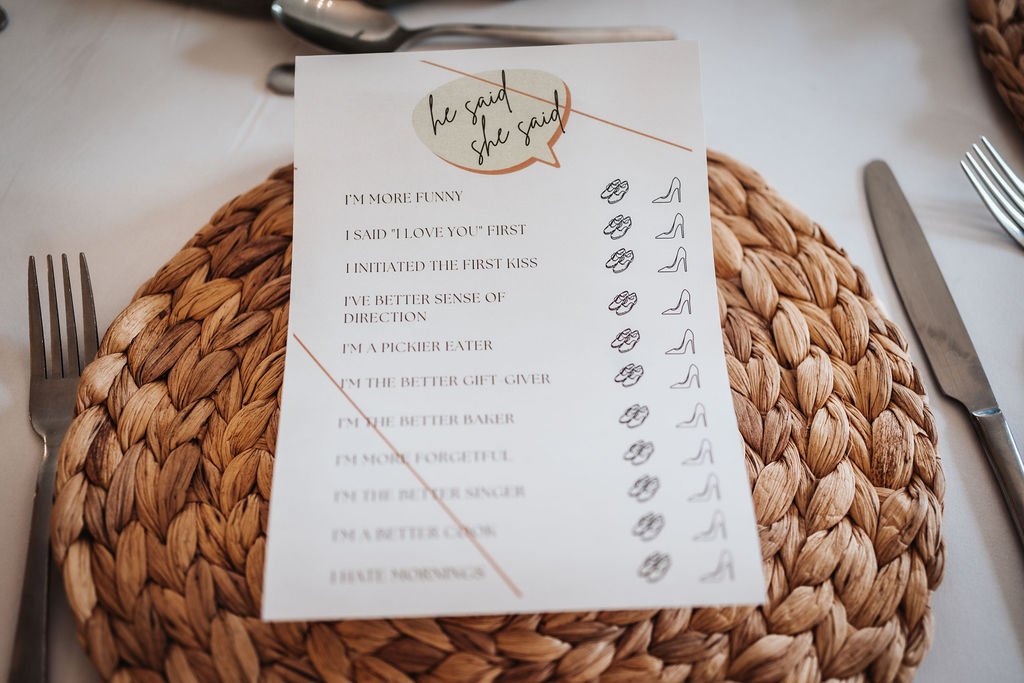 he said
she said
I'M MORE FUNNY
I SAID "I LOVE YOU" FIRST
I INITIATED THE FIRST KISS
I'VE BETTER SENSE OF
DIRECTION
I'M A PICKIER EATER
I'M THE BETTER GIFT-GIVER
I'M THE BETTER BAKER
I'M MORE FORGETFUL
I'M THE BETTER SINGER
I'M A BETTER COOK
I HATE MORNINGS